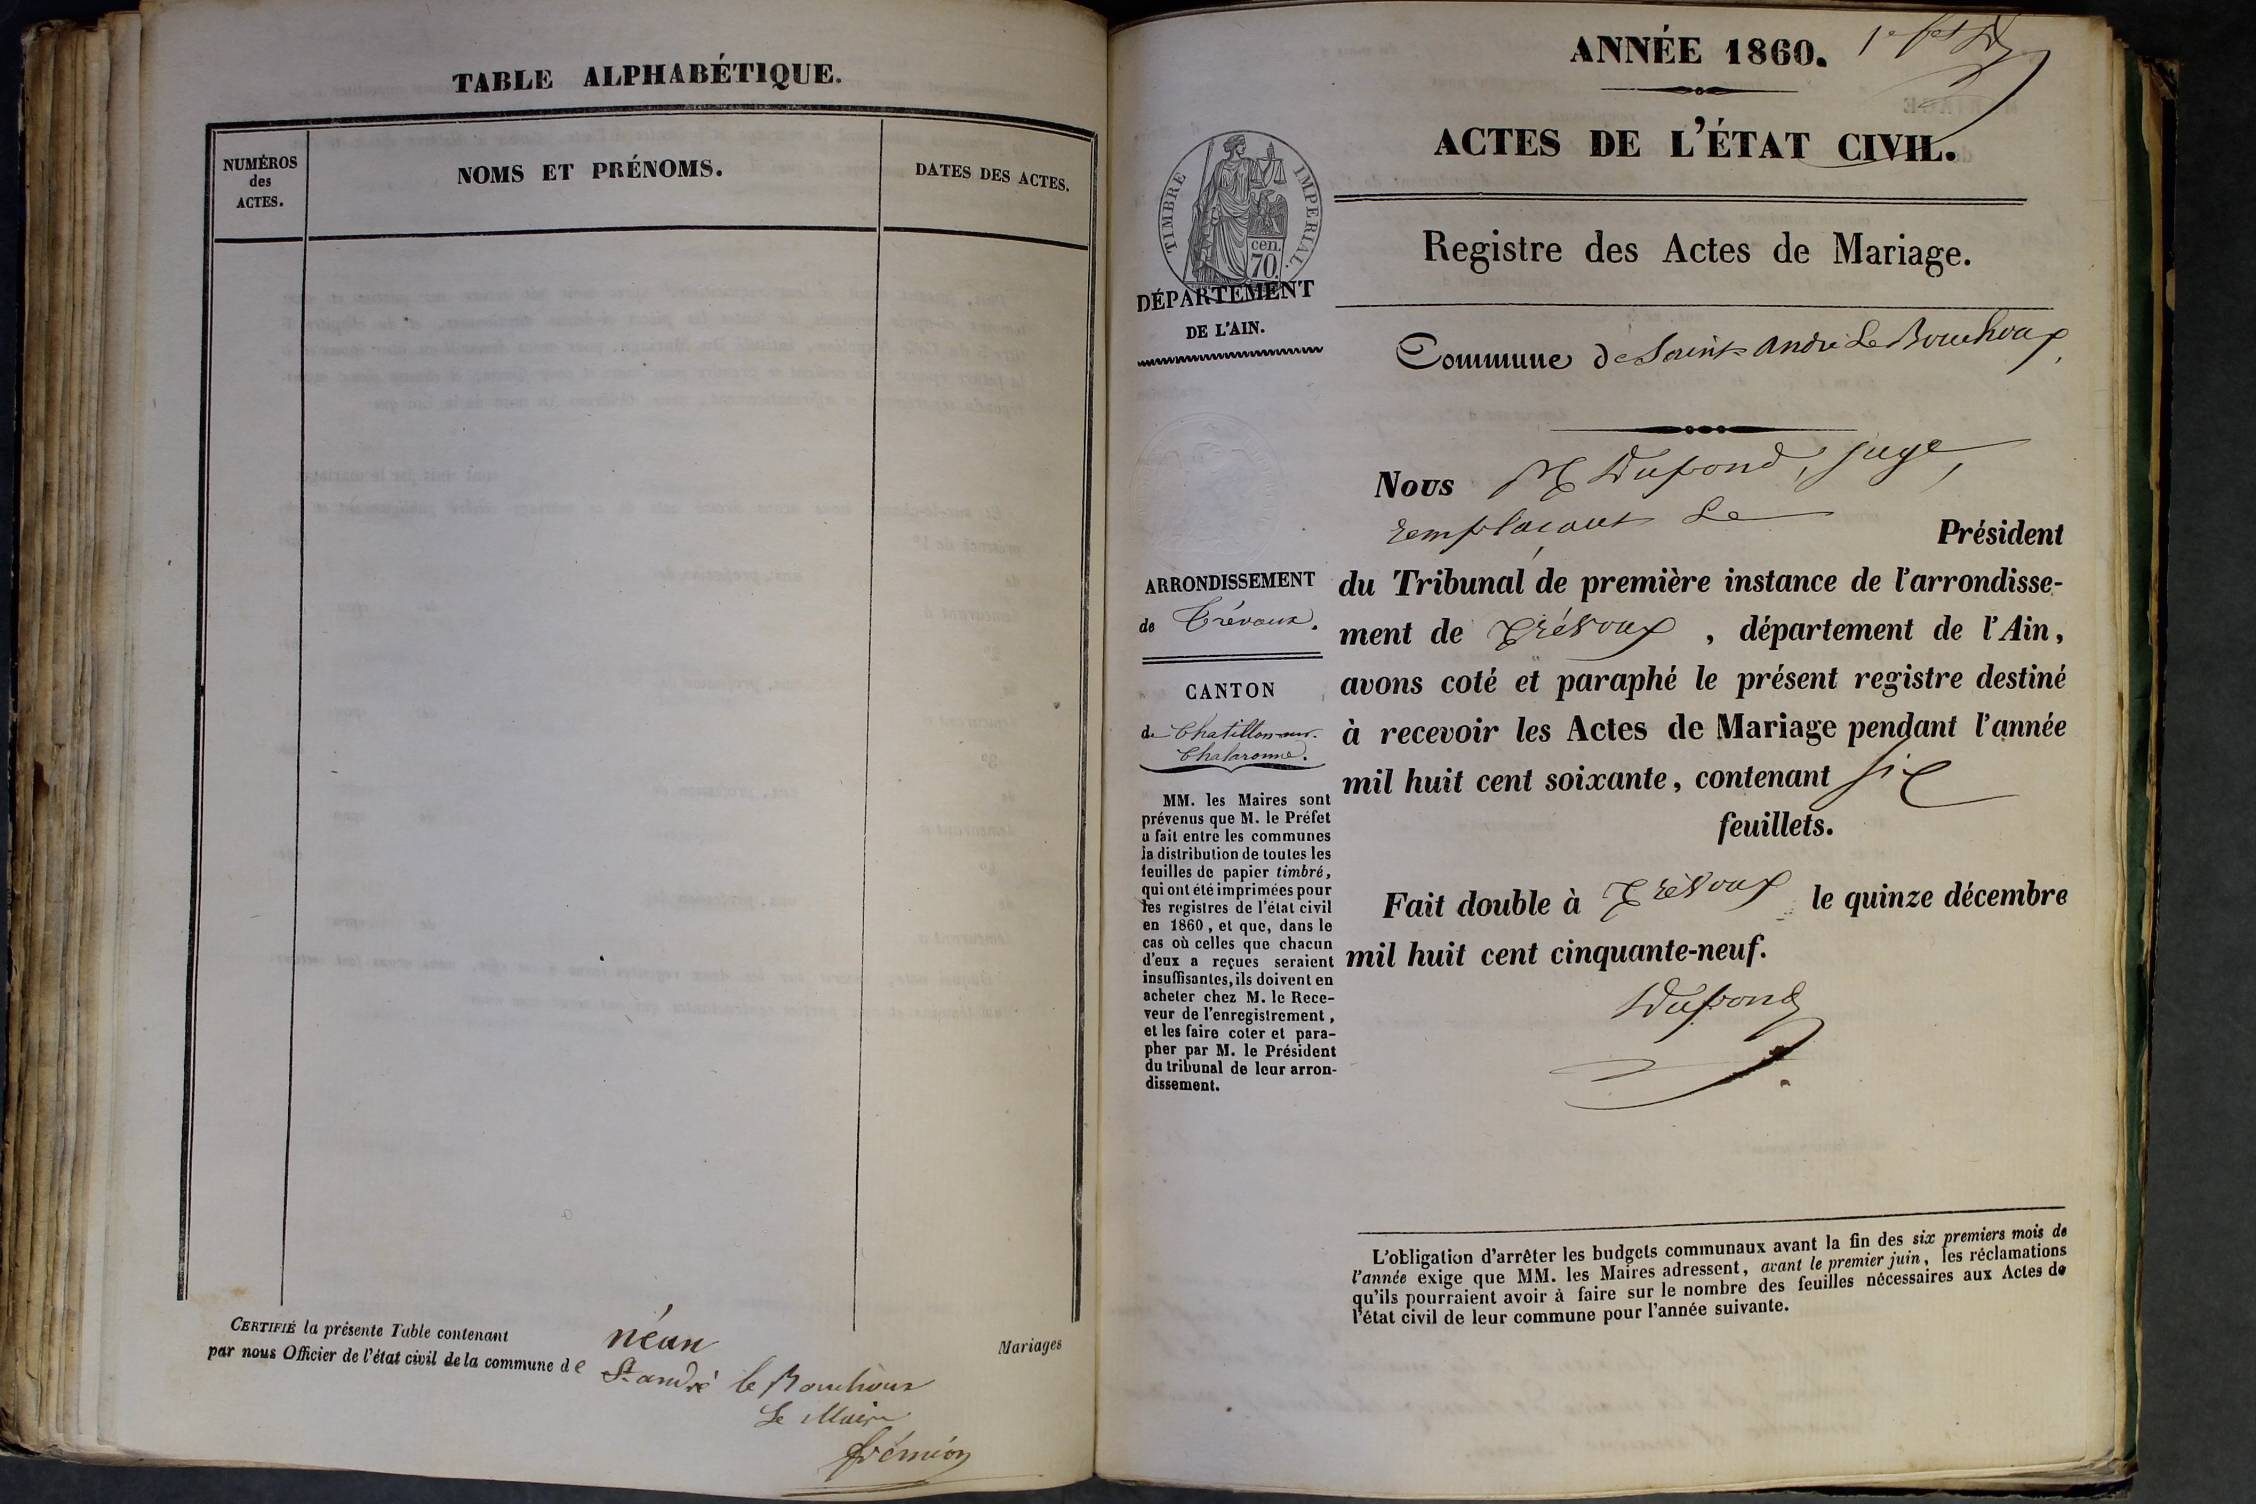 TABLE ALPHABÉTIQUE.
NUMÉROS
des
ACTES.
NOMS ET PRÉNOMS.
DATES DES ACTES.
CERTIFIÉ la présente Table contenant néan Mariages
par nous Officier de l'état civil de la commune de St andré le Bouchoux
Le Maire
ANNÉE 1860.
ACTES DE L'ÉTAT CIVIL.
Registre des Actes de Mariage.
TIMBRE IMPERIAL.
cen.
70.
DÉPARTEMENT
DE L'AIN.
Commune de Saint andré Le Bouchoux
ARRONDISSEMENT
de Trévoux.
CANTON
de Chatillon-sur-
Chalaronne.
MM. les Maires sont
prévenus que M. le Préfet
a fait entre les communes
la distribution de toutes les
feuilles de papier timbré,
qui ont été imprimées pour
les registres de l'état civil
en 1860, et que, dans le
cas où celles que chacun
d'eux a reçues seraient
insuffisantes, ils doivent en
acheter chez M. le Rece-
veur de l'enregistrement,
et les faire coter et para-
pher par M. le Président
du tribunal de leur arron-
dissement.
Nous M Dupond, juge,
remplacant Le Président
du Tribunal de première instance de l'arrondisse-
ment de Trévoux, département de l'Ain,
avons coté et paraphé le présent registre destiné
à recevoir les Actes de Mariage pendant l'année
mil huit cent soixante, contenant six
feuillets.
Fait double à Trévoux le quinze décembre
mil huit cent cinquante-neuf.
Dupond
L'obligation d'arrêter les budgets communaux avant la fin des six premiers mois de
l'année exige que MM. les Maires adressent, avant le premier juin, les réclamations
qu'ils pourraient avoir à faire sur le nombre des feuilles nécessaires aux Actes de
l'état civil de leur commune pour l'année suivante.